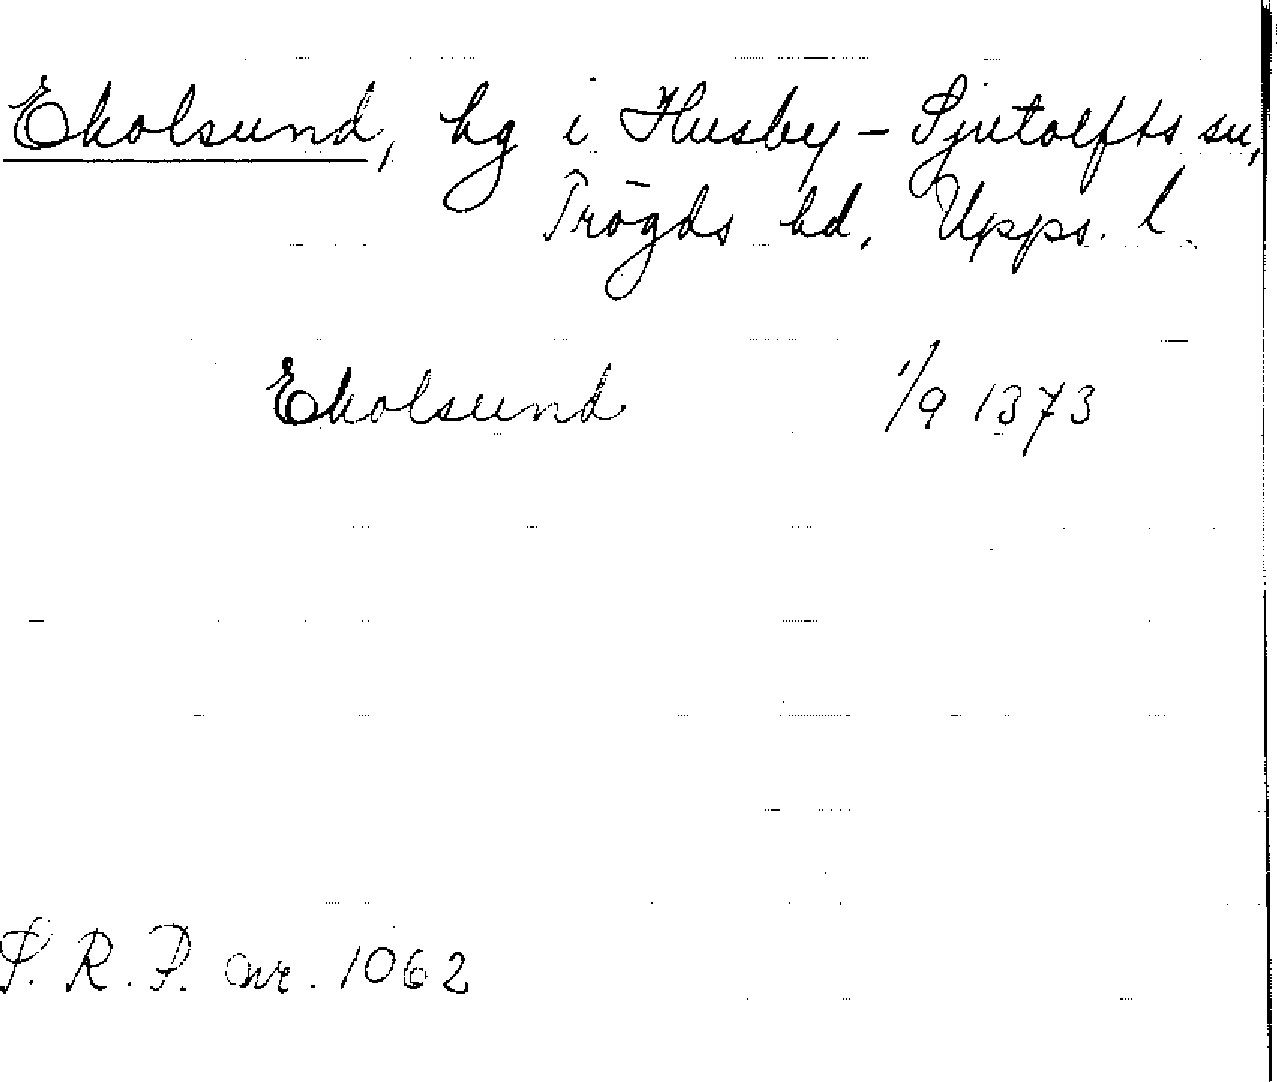 Ekolsund, hg i Husby-Sjutolfts sn,
Trögds hd, Upps. l.
Ekolsund 1/9 1373
S. R. P. nr. 1062